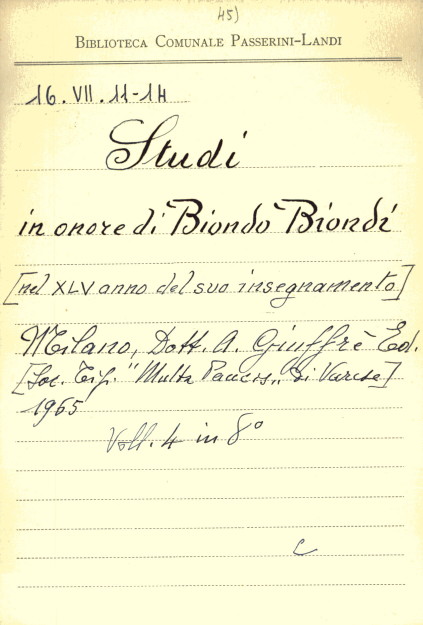 45)
BIBLIOTECA COMUNALE PASSERINI-LANDI
16. VII. 11-14
Studi
in onore di Biondo Biondi
[nel XLV anno del suo insegnamento]
Milano, Dott. A. Giuffrè Ed.
[Soc. Tip. "Multa Paucis" di Varese]
1965
Voll. 4 in 8°
c